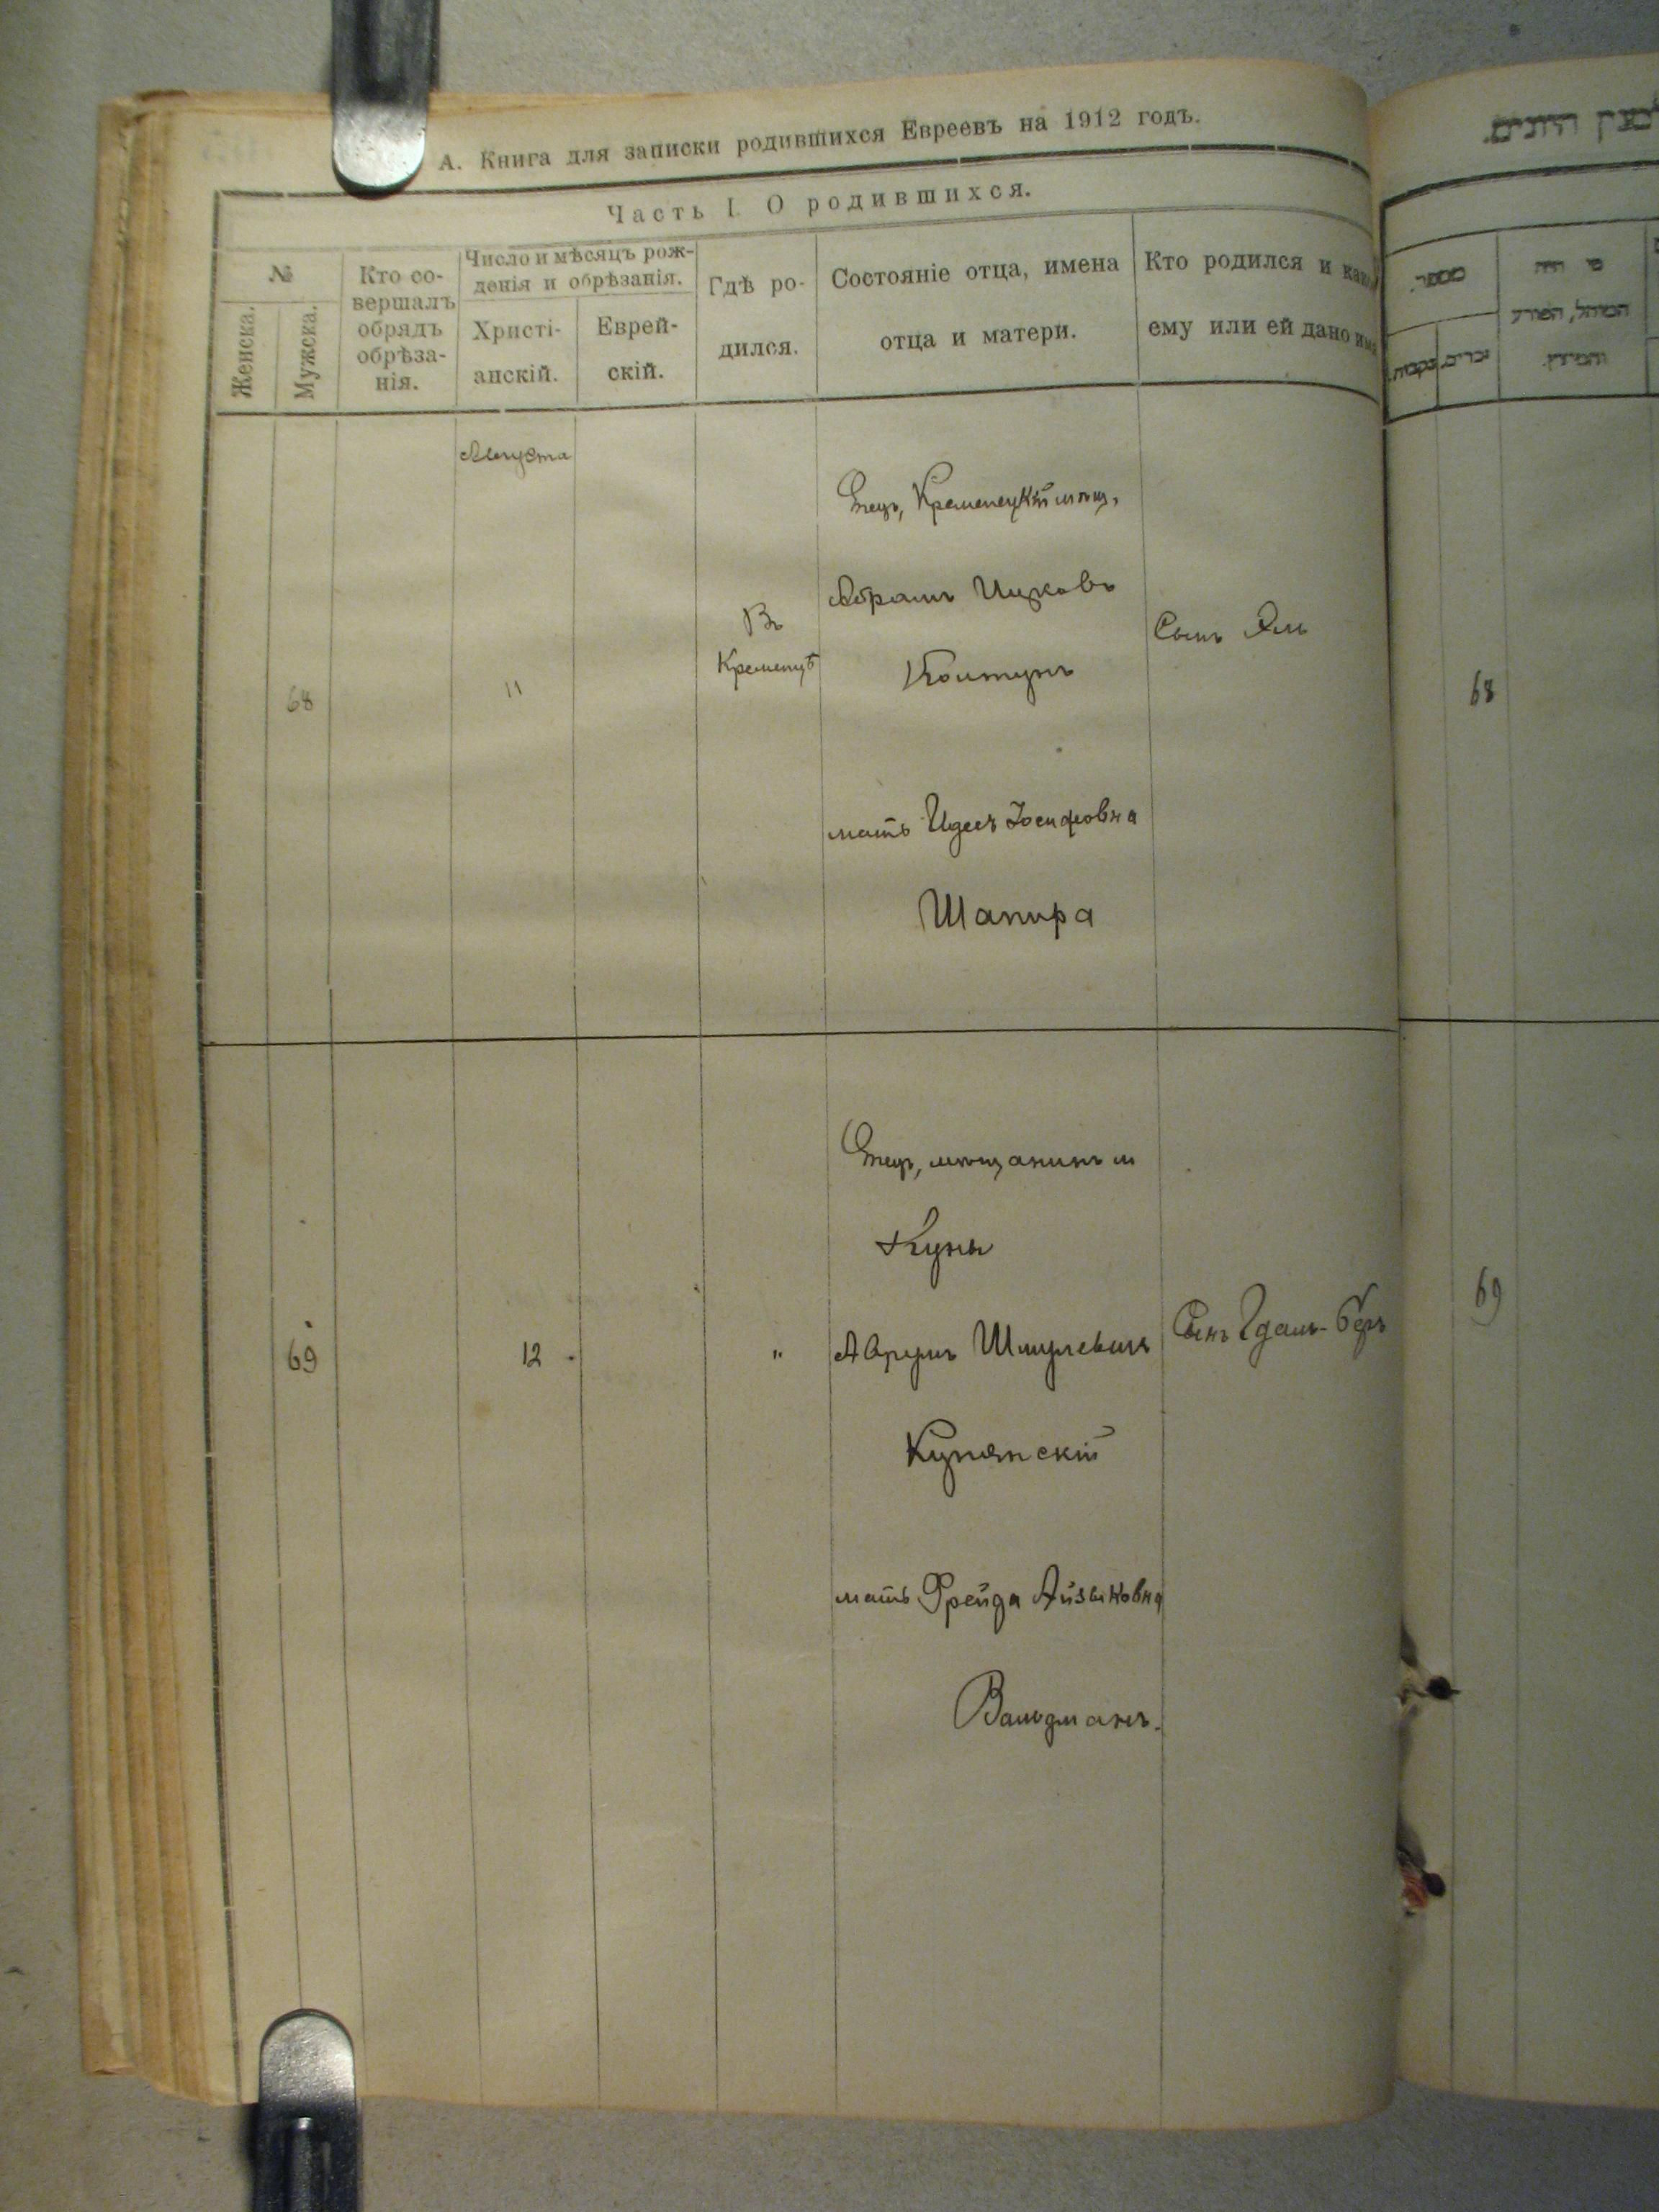 А. Книга для записки родившихся Евреевъ на 1912 годъ.
Часть I. О родившихся.
№
Женска.
Мужска.
Кто со-
вершалъ
обрядъ
обрѣза-
нія.
Число и мѣсяцъ рож-
денія и обрѣзанія.
Христі-
анскій.
Еврей-
скій.
Гдѣ ро-
дился.
Состояніе отца, имена
отца и матери.
Кто родился и
ему или ей дано
Августа
68
11
Въ
Кременцѣ
Отецъ, Кременецкій мѣщ.
Абрамъ Ицковъ
Колтунъ
мать Идесъ Іосифовна
Шапира
Сынъ
69
12
"
Отецъ, мѣщанинъ м
Кунь
Аврумъ Шмулевичъ
Кунянскій
мать Фрейда Айзыковна
Вальдманъ.
Сынъ Гдаль-Беръ
מספר.
זכרים.
נקבות.
מי היה
המוהל, הפורע
והמוצץ.
68
69